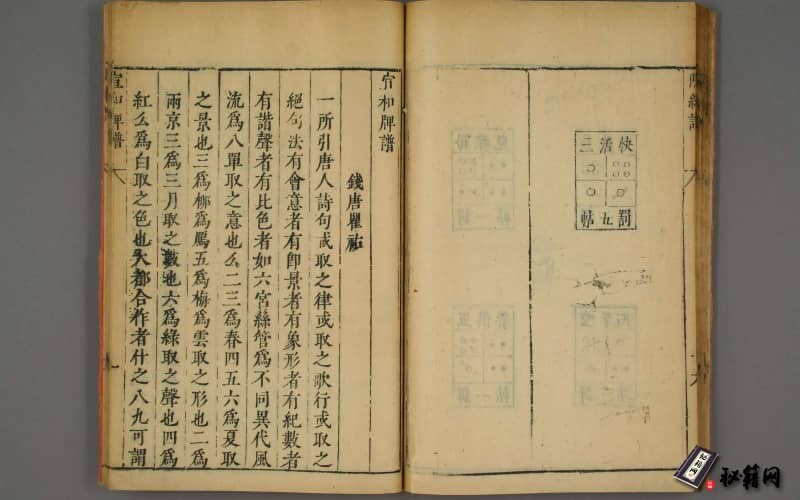 快活三
罰五帖
宣和牌譜
錢唐瞿祐
一所引唐人詩句或取之律或取之歌行或取之
絕句法有會意者有卽景者有象形者有紀數者
有諧聲者有比色者如六宮絲管爲不同異代風
流爲八單取之意也么二三爲春四五六爲夏取
之景也三爲柳爲鴈五爲梅爲雲取之形也二爲
兩京三爲三月取之數也六爲綠取之聲也四爲
紅么爲白取之色也大都合作者什之八九可謂
宣和牌譜
秘籍网